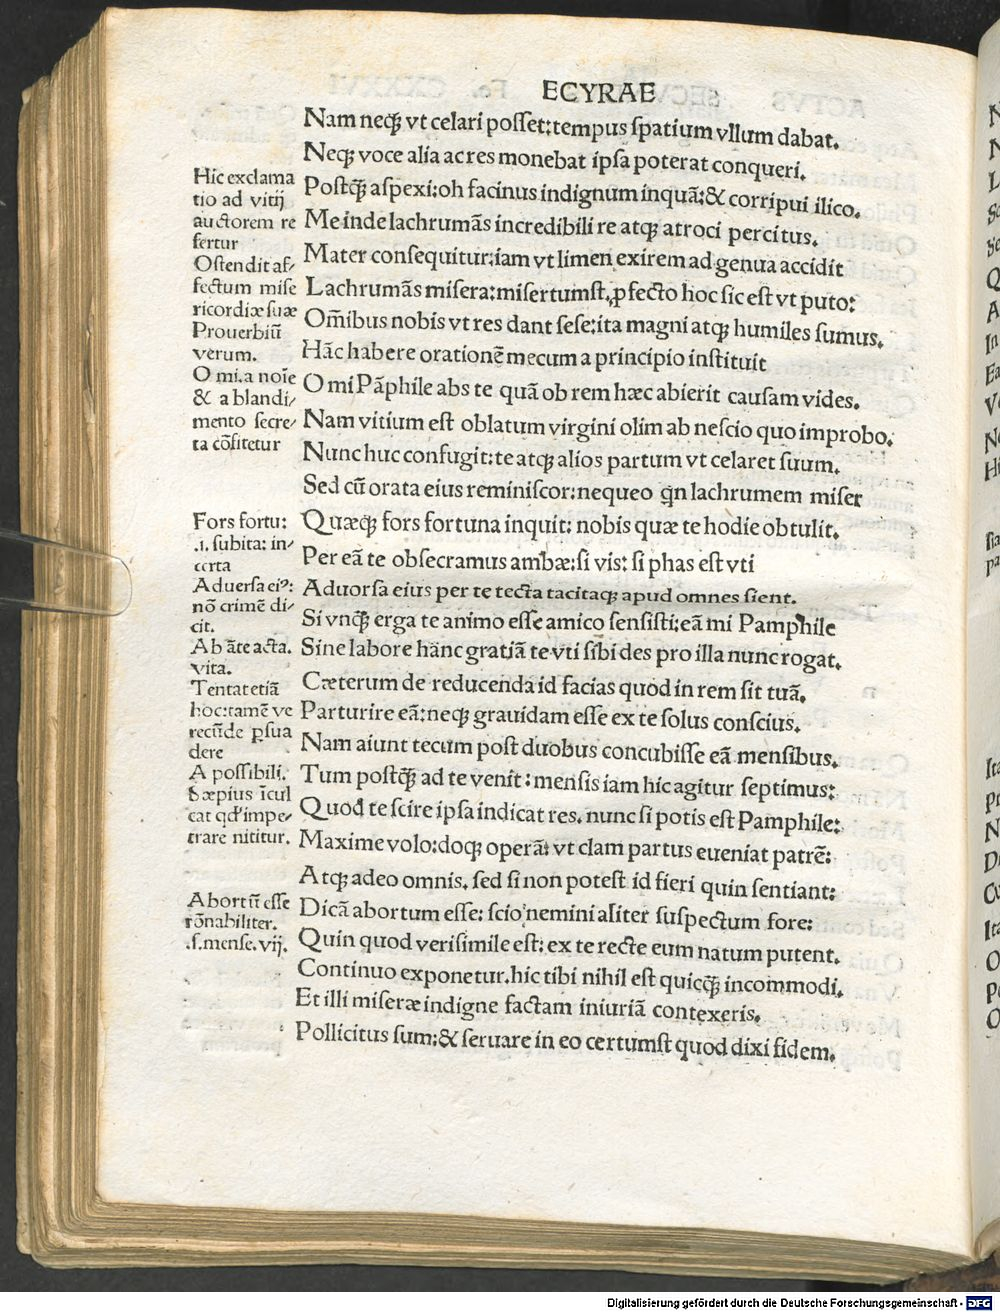 ECYRAE
Nam neqꝫ vt celari posset:tempus spatium vllum dabat.
Neqꝫ voce alia ac res monebat ipsa poterat conqueri.
Postqꝫ̃ aspexi:oh facinus indignum inquã:& corripui ilico.
Me inde lachrumãs incredibili re atqꝫ atroci percitus.
Mater consequitur:iam vt limen exirem ad genua accidit
Lachrumãs misera:misertumst.ꝓfecto hoc sic est vt puto:
Om̃ibus nobis vt res dant sese:ita magni atqꝫ humiles sumus.
Hãc habere orationẽ mecum a principio instituit
O mi Pãphile abs te quã ob rem hæc abierit causam vides.
Nam vitium est oblatum virgini olim ab nescio quo improbo.
Nunc huc confugit:te atqꝫ alios partum vt celaret suum.
Sed cũ orata eius reminiscor:nequeo qͥn lachrumem miser
Quæqꝫ fors fortuna inquit: nobis quæ te hodie obtulit.
Per eã te obsecramus ambæ:si vis: si phas est vti
Aduorsa eius per te tecta tacitaqꝫ apud omnes sient.
Si vnqꝫ̃ erga te animo esse amico sensisti:eã mi Pamphile
Sine labore hanc gratiã te vti sibi des pro illa nunc rogat.
Cæterum de reducenda id facias quod in rem sit tuã.
Parturire eã:neqꝫ grauidam esse ex te solus conscius.
Nam aiunt tecum post duobus concubisse eã mensibus.
Tum postqꝫ̃ ad te venit: mensis iam hic agitur septimus:
Quod te scire ipsa indicat res. nunc si potis est Pamphile:
Maxime volo:doqꝫ operã: vt clam partus eueniat patrẽ:
Atqꝫ adeo omnis. sed si non potest id fieri quin sentiant:
Dicã abortum esse: scio nemini aliter suspectum fore:
Quin quod verisimile est: ex te recte eum natum putent.
Continuo exponetur.hic tibi nihil est quicqꝫ̃ incommodi.
Et illi miseræ indigne factam iniuriã contexeris.
Pollicitus sum:& seruare in eo certumst quod dixi fidem.
Hic exclama
tio ad vitij
auctorem re
fertur
Ostendit af/
fectum mise
ricordiæ suæ
Prouerbiũ
verum.
O mi.a noĩe
& a blandi/
mento secre/
ta cõfitetur
Fors fortu:
.i. subita: in/
certa
Aduersa eiꝰ:
nõ crimẽ di/
cit.
Ab ãte acta.
vita.
Tentat etiã
hoc:tamẽ ve
recũde ꝑsua
dere
A possibili.
Sæpius ĩcul
cat qd' impe/
trare nititur.
Abortũ esse
rõnabiliter.
.s.mense.vij.
Digitalisierung gefördert durch die Deutsche Forschungsgemeinschaft - DFG